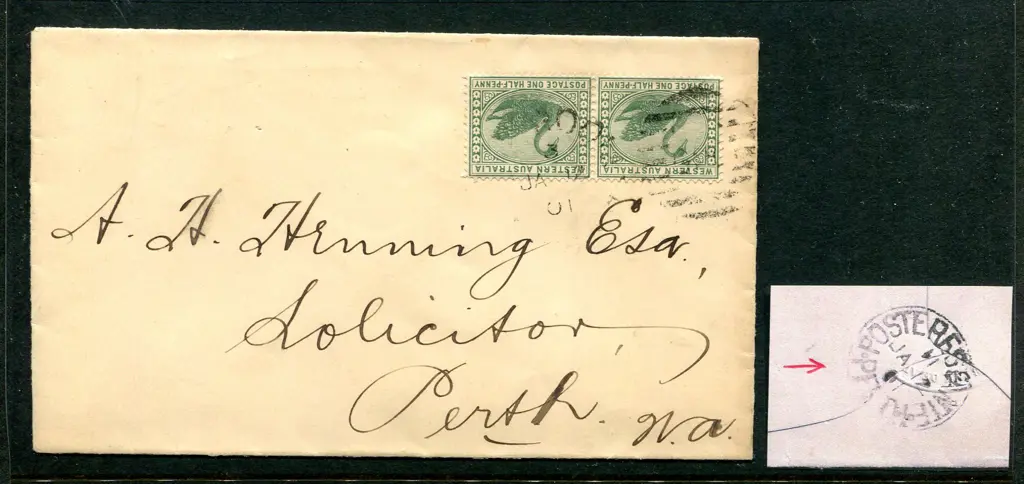 POSTAGE ONE HALF-PENNY
WESTERN AUSTRALIA
POSTAGE ONE HALF-PENNY
WESTERN AUSTRALIA
JA
01
A. H. Henning Esqr.,
Solicitor,
Perth. W.a.
POSTE RES
JA